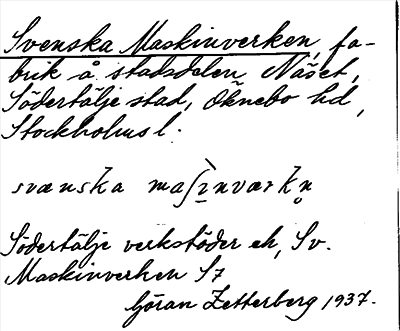 Svenska Maskinverken, fa-
brik å stadsdelen Näset,
Södertälje stad, Öknebo hd,
Stockholms l.
svænska maʃi̲nværkn̥
Södertälje verkstäder eh, Sv.
Maskinverken S7
Göran Zetterberg 1937.